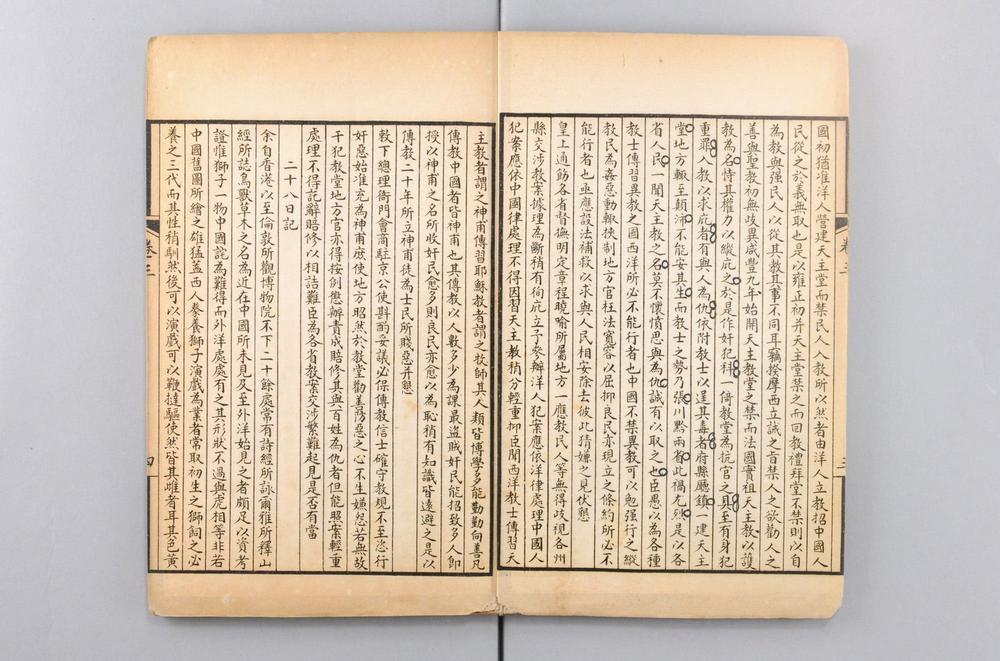 國初猶准洋人營建天主堂而禁民人入教所以然者由洋人立教招中國人
民從之於義無取也是以雍正初并天主堂禁之而回教禮拜堂不禁則以自
為教與强民人以從其教其事不同耳竊揆摩西立誡之旨禁人之欲勸人之
善與聖教初無歧異咸豐九年始開天主教堂之禁而法國實祖天主教以護
教為名恃其權力以縱庇之於是作奸犯科一倚教堂為抗官之具至有身犯
重罪入教以求庇者有與人為仇依附教士以逞其毒者府縣廳鎮一建天主
堂地方輒至鼎沸不能安其生而教士之勢乃張川黔兩省此禍尤烈是以各
省人民一聞天主教之名莫不懷憤思與為仇誠有以取之也臣愚以為各種
教士傳習異教之國西洋所必不能行者也中國不禁異教可以勉强行之縱
教民為姦惡動輒挾制地方官枉法寬容以屈抑良民亦現立之條約所必不
能行者也亟應設法補救以求與人民相安除去彼此猜嫌之見伏懇
皇上通飭各省督撫明定章程曉喻所屬地方一應教民人等無得歧視各州
縣交涉教案據理為斷稍有徇庇立予參辦洋人犯案應依洋律處理中國人
犯案應依中國律處理不得因習天主教稍分輕重抑臣聞西洋教士傳習天
卷三
三
主教者謂之神甫傳習耶穌教者謂之牧師其人類皆博學多能勤勤向善凡
傳教中國者皆神甫也其傳教以人數多少為課最盜賊奸民能招致多人即
授以神甫之名所收奸民愈多則良民亦愈以為恥稍有知識皆遠避之是以
傳教二十年所立神甫徒為士民所賤惡并懇
敕下總理衙門會商駐京公使斟酌妥議必保傳教信士確守教規不至恣行
奸惡始准充為神甫庶使地方昭然於教堂勸善防惡之心不生嫌怨若無故
干犯教堂地方官亦得按例懲辦責成賠修其與百姓為仇者但能照案輕重
處理不得託辭賠修以相詰難臣為各省教案交涉繁難起見是否有當
二十八日記
余自香港以至倫敦所觀博物院不下二十餘處常有詩經所詠爾雅所釋山
經所誌鳥獸草木之名為近在中國所未見及至外洋始見之者頗足以資考
證惟獅子一物中國詫為難得而外洋處處有之其形狀不過與虎相等非若
中國舊圖所繪之雄猛蓋西人豢養獅子演戲為業者常取初生之獅飼之必
養之三代而其性稍馴然後可以演戲可以鞭撻驅使然皆其雌者耳其色黃
卷三
四